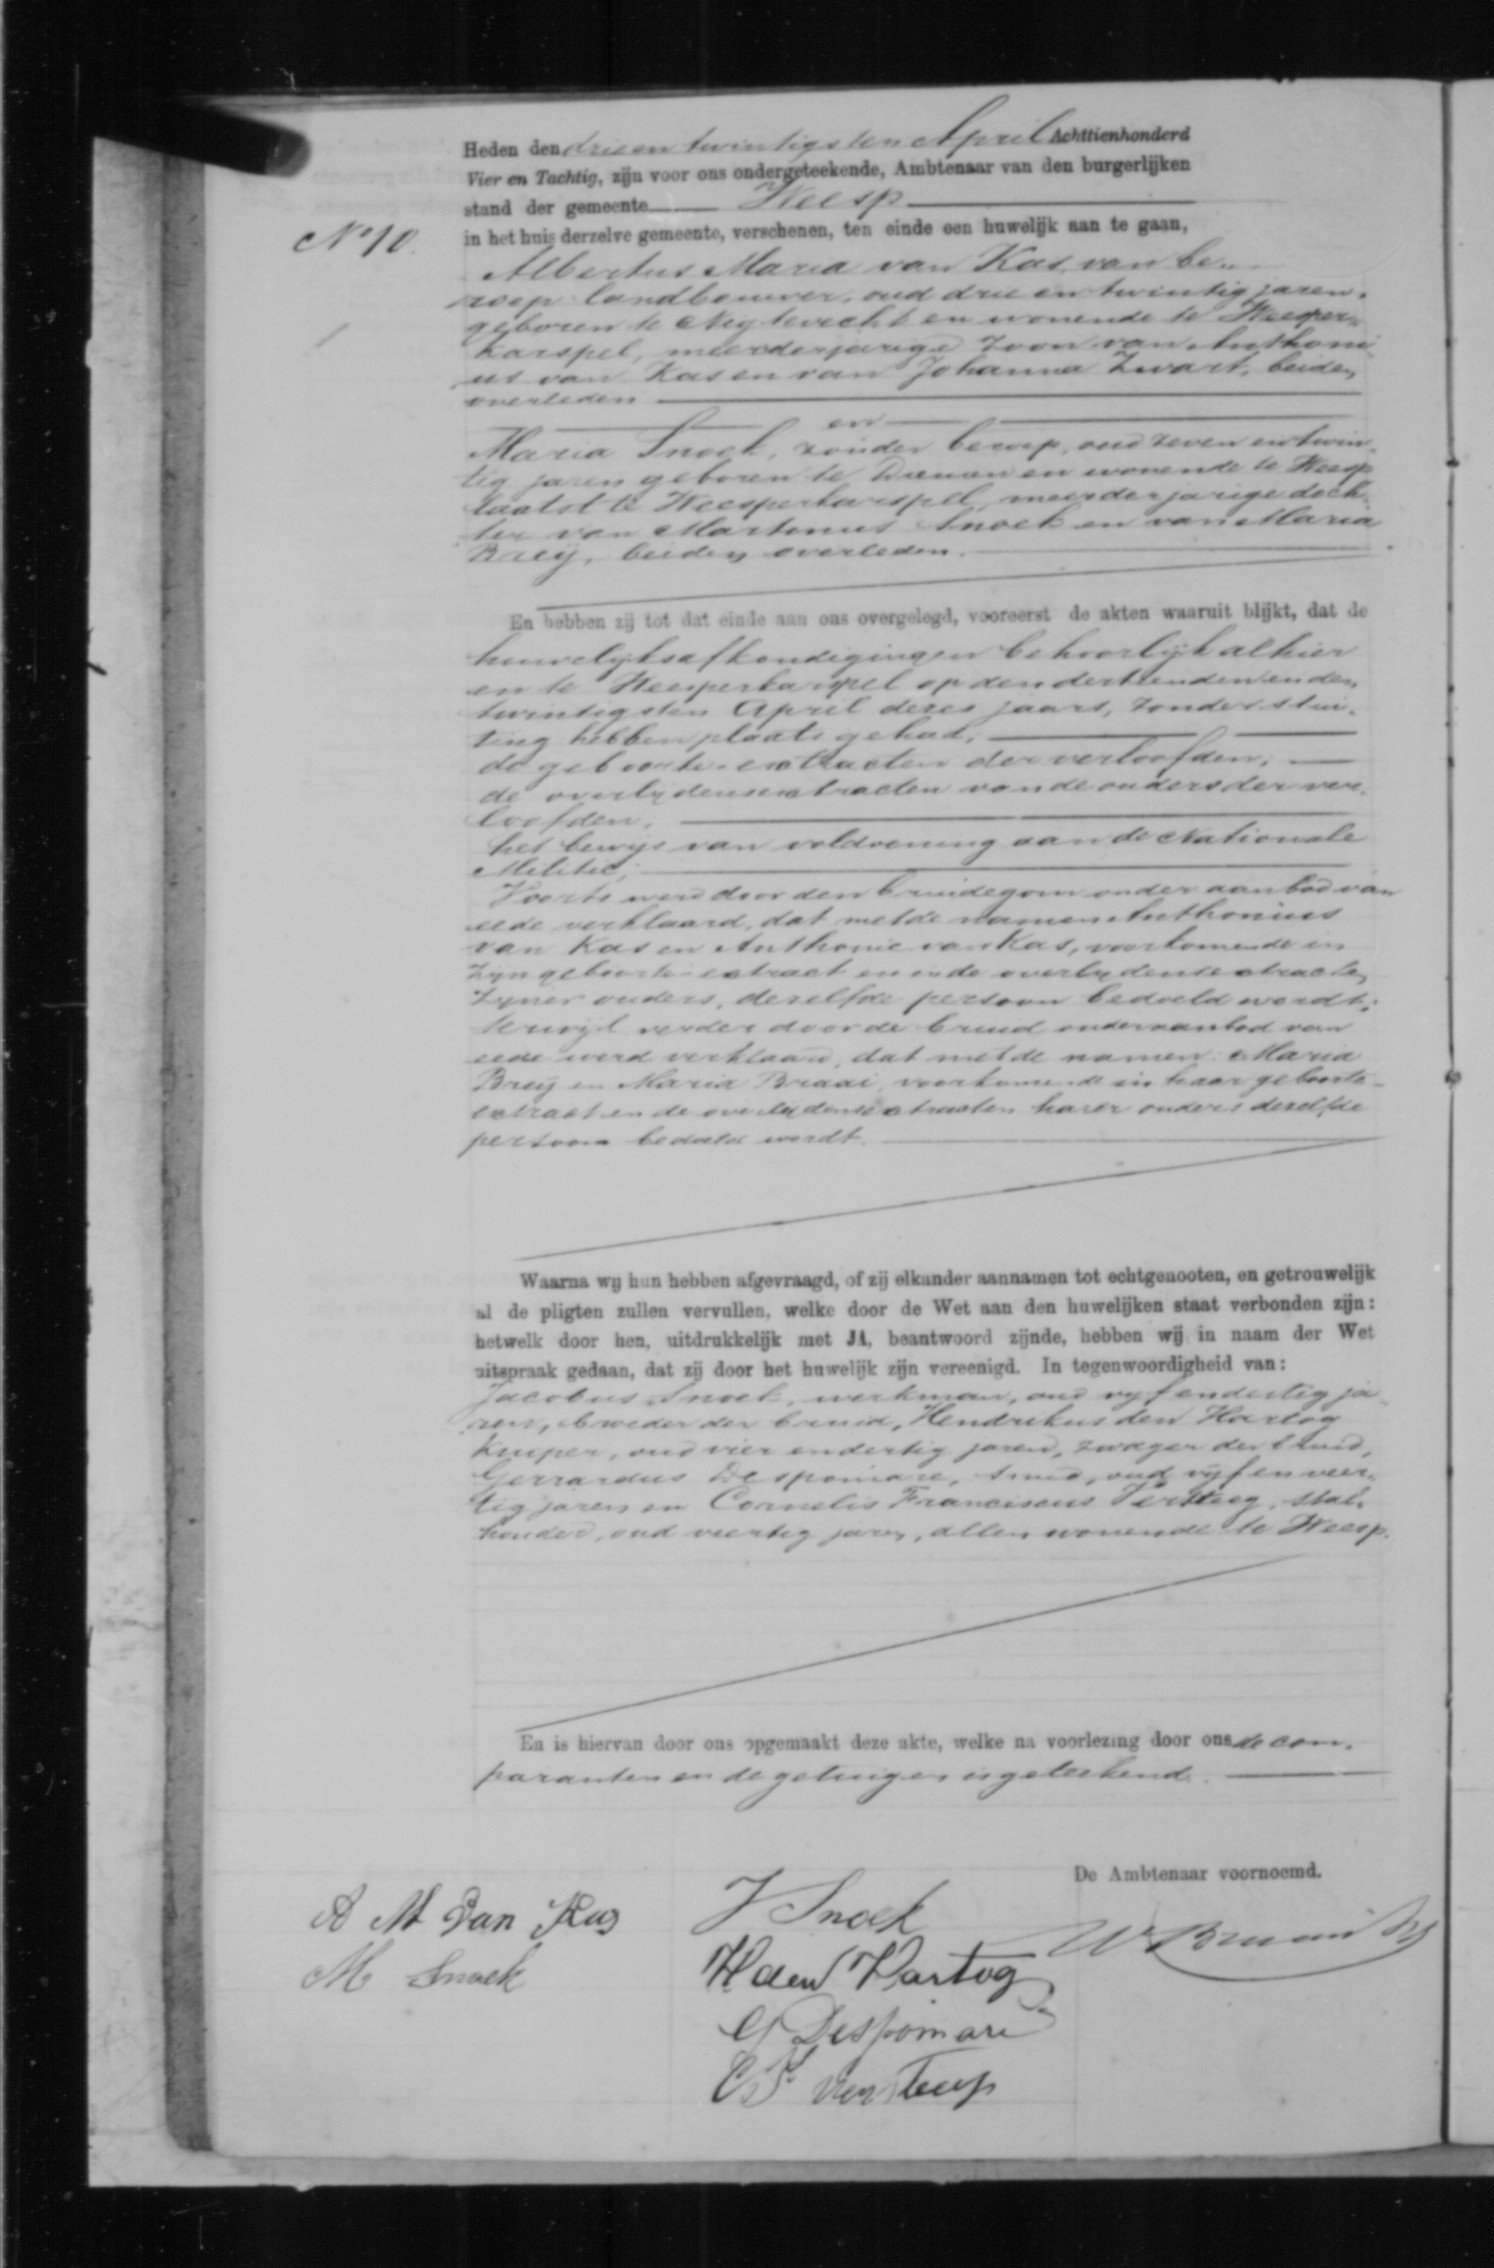 Heden den drieen twintigsten April Achttienhonderd
Vier en Tachtig, zijn voor ons ondergeteekende, Ambtenaar van den burgerlijken
stand der gemeente Weesp
No 10.
in het huis derzelve gemeente, verschenen, ten einde een huwelijk aan te gaan,
Albertus Maria van Kas, van be-
roep landbouwer, oud drie en twintig jaren,
geboren te Nigtevecht en wonende te Weesper-
karspel, meerderjarige zoon van Anthoni
us van Kas en van Johanna Zwart, beiden
overleden
en
Maria Snoek, zonder beroep, oud zeven en twin-
tig jaren geboren te Diemen en wonende te Weesp
laatst te Weesperkarspel, meerderjarige doch-
ter van Martinus Snoek en van Maria
Breij, beiden overleden.
En hebben zij tot dat einde aan ons overgelegd, vooreerst de akten waaruit blijkt, dat de
huwelijksafkondigingen behoorlijk alhier
en te Weesperkarspel op den dertienden en den
twintigsten April dezes jaars, zonder stui-
ting hebben plaats gehad;
de geboorte-extracten der verloofden;
de overlijdensextracten van de ouders der ver-
loofden.
het bewijs van voldoening aan de Nationale
Militie;
Voorts werd door den bruidegom onder aanbod van
eede verklaard, dat met de namen Anthonius
van Kas en Anthonie van Kas, voorkomende in
zijn geboorte-extract en in de overlijdensextracten
zijner ouders, dezelfde persoon bedoeld wordt;
terwijl verder door de bruid onder aanbod van
eede werd verklaard, dat met de namen: Maria
Breij en Maria Braai, voorkomende in haar geboorte-
extract en de overlijdensextracten harer ouders dezelfde
persoon bedoeld wordt.
Waarna wij hun hebben afgevraagd, of zij elkander aannamen tot echtgenooten, en getrouwelijk
al de pligten zullen vervullen, welke door de Wet aan den huwelijken staat verbonden zijn:
hetwelk door hen, uitdrukkelijk met JA, beantwoord zijnde, hebben wij in naam der Wet
uitspraak gedaan, dat zij door het huwelijk zijn vereenigd. In tegenwoordigheid van:
Jacobus Snoek, werkman, oud vijf en dertig ja-
ren, broeder der bruid, Hendrikus den Hartog
kuiper, oud vier en dertig jaren, zwager der bruid,
Gerrardus Despomare, smid, oud vijf en veer-
tig jaren en Cornelis Franciscus Versteeg, stal-
houder, oud veertig jaren, allen wonende te Weesp.
En is hiervan door ons opgemaakt deze akte, welke na voorlezing door ons de com-
paranten en de getuigen is geteekend.
De Ambtenaar voornoemd.
A M Van Kas
M Snoek
J Snoek
H den Hartog
G Despomare
C F Versteeg